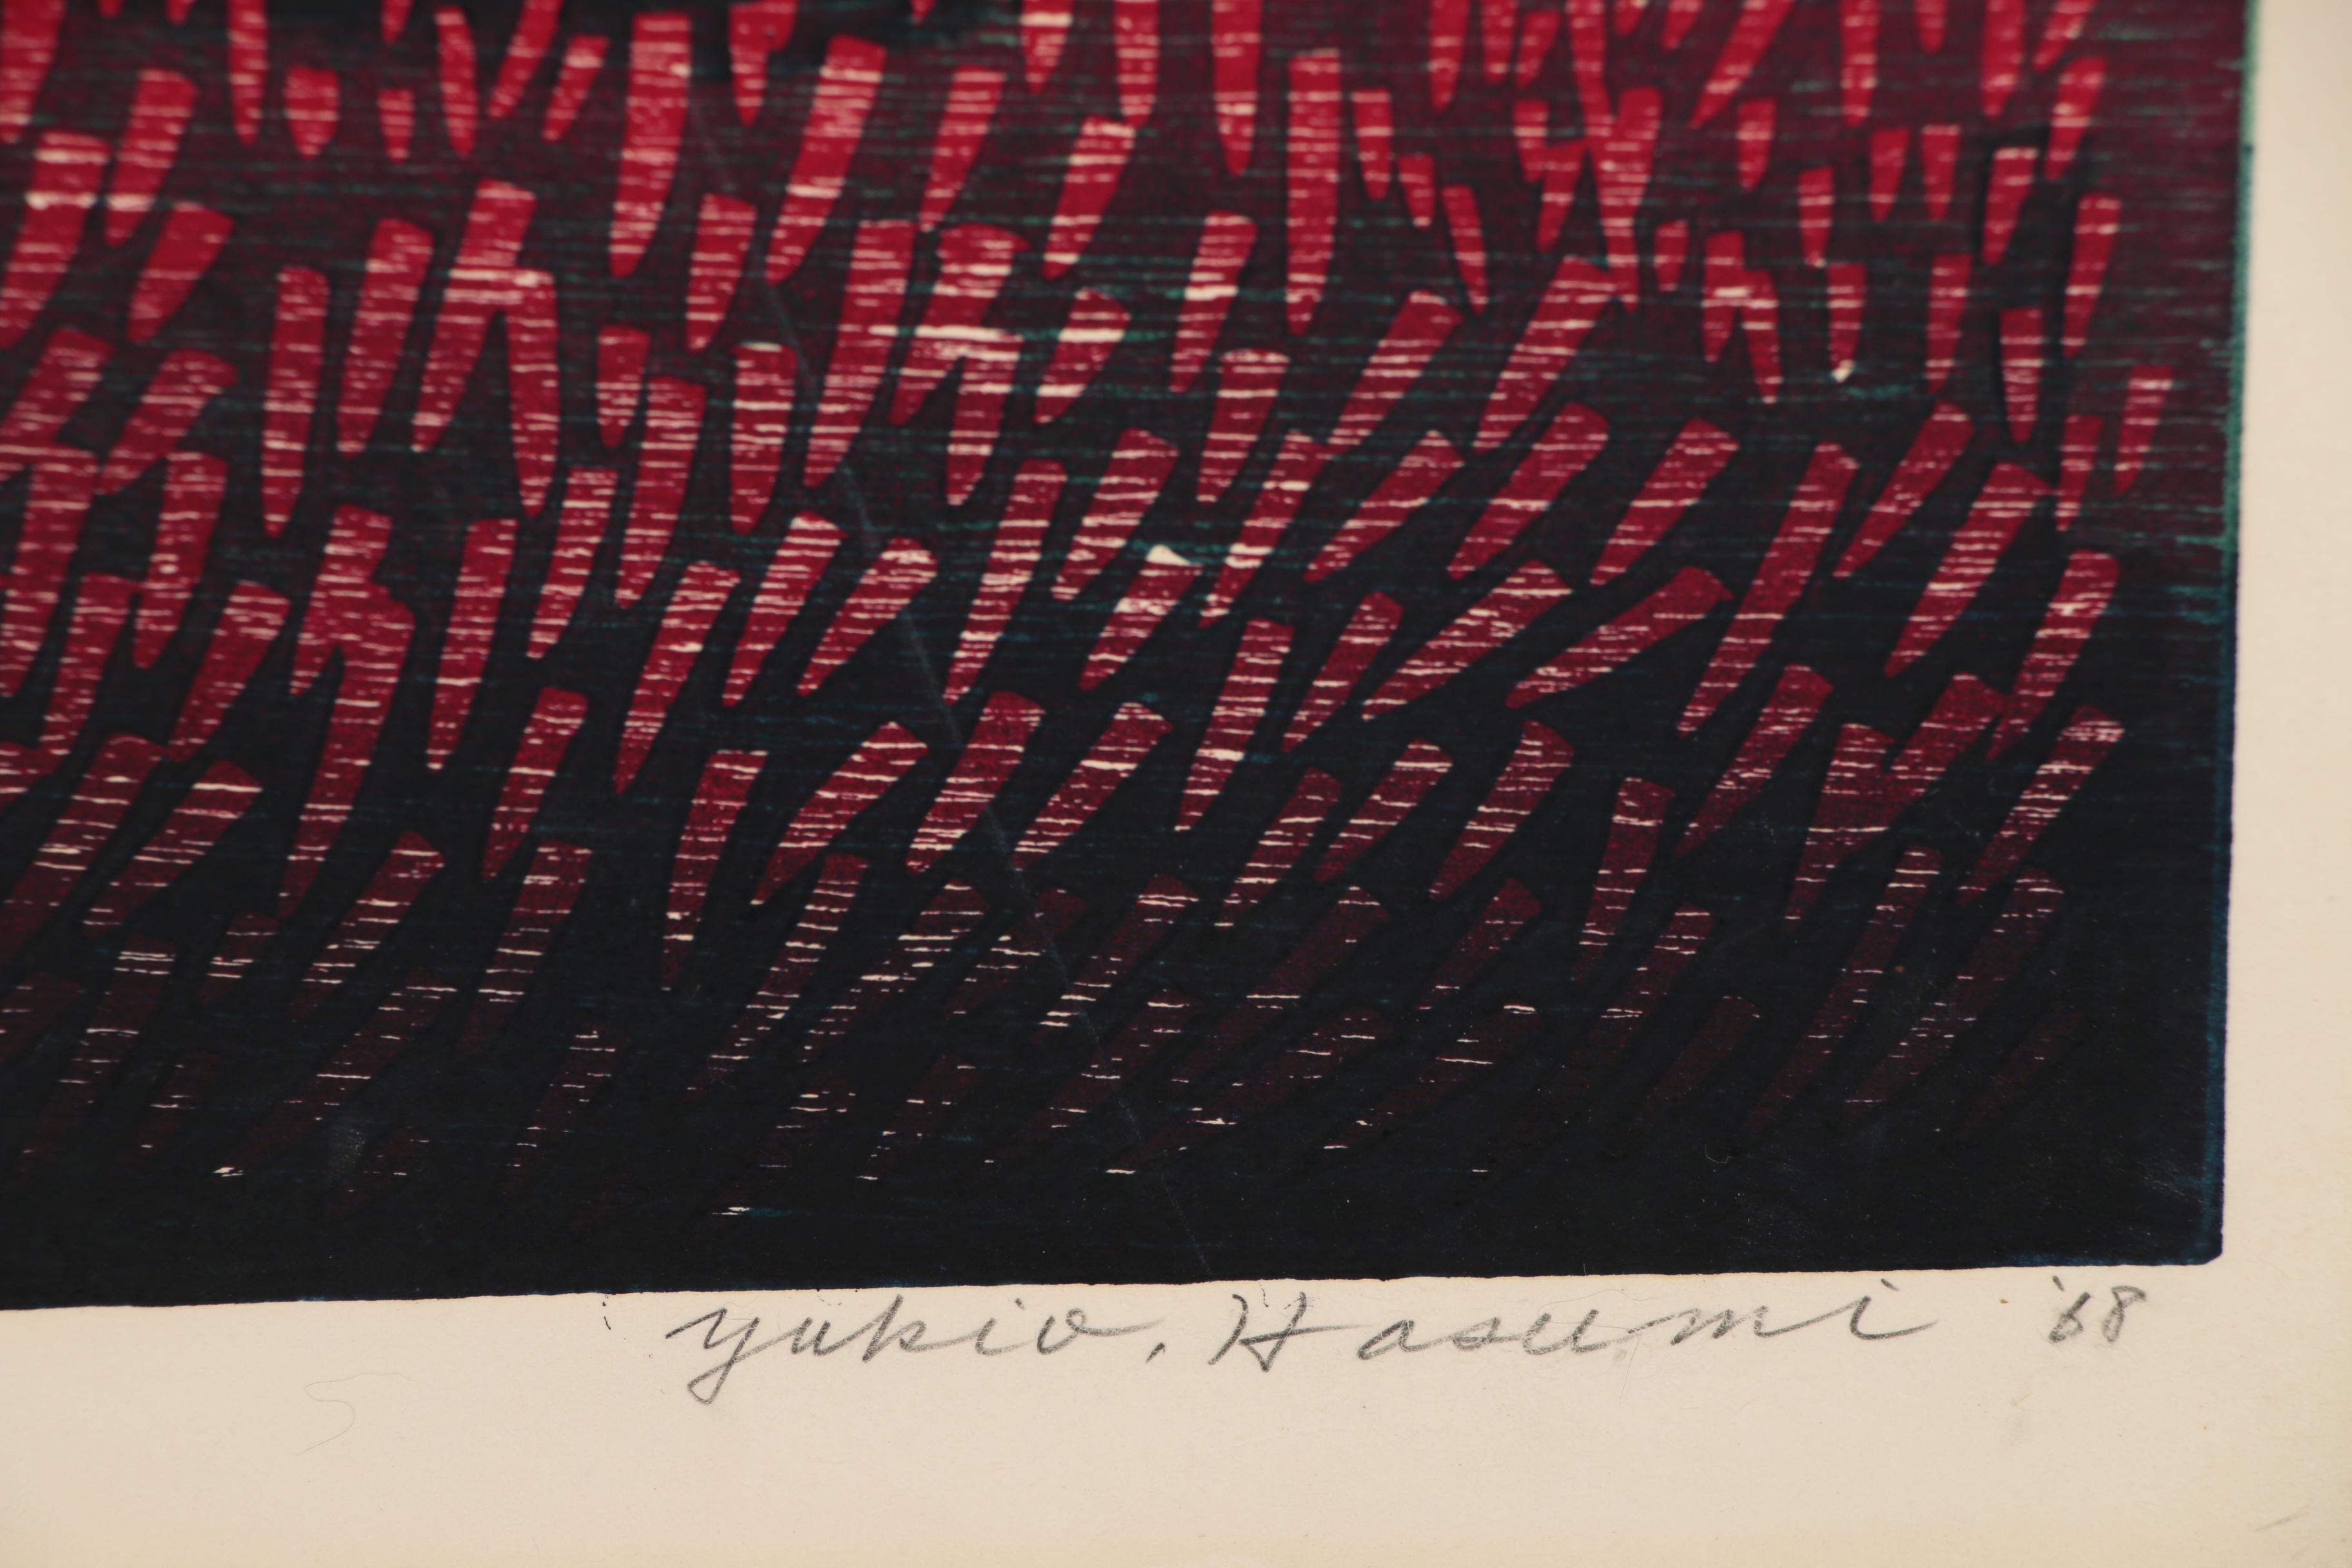 yukio. Hasumi '68